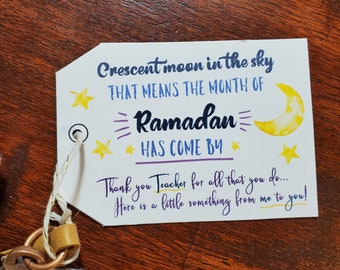 Crescent moon in the sky
THAT MEANS THE MONTH OF
Ramadan
HAS COME BY
Thank you Teacher for all that you do...
Here is a little something from me to you!